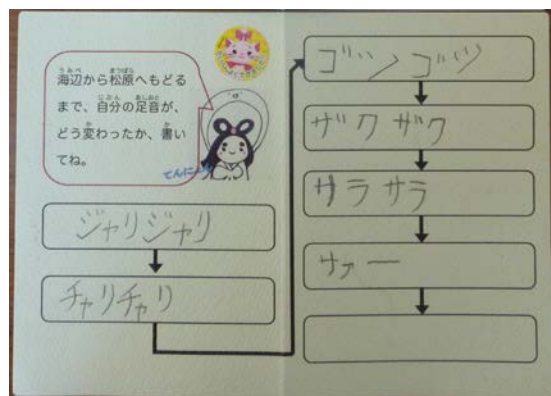 海辺から松原へもどる
まで、自分の足音が、
どう変わったか、書い
てね。
てんにょ
ジャリジャリ
チャリチャリ
ゴツゴツ
ザクザク
サラサラ
サァー